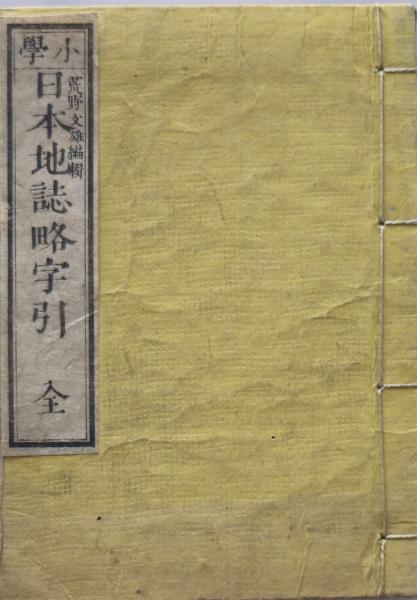 小學
荒野文雄編輯
日本地誌略字引 全